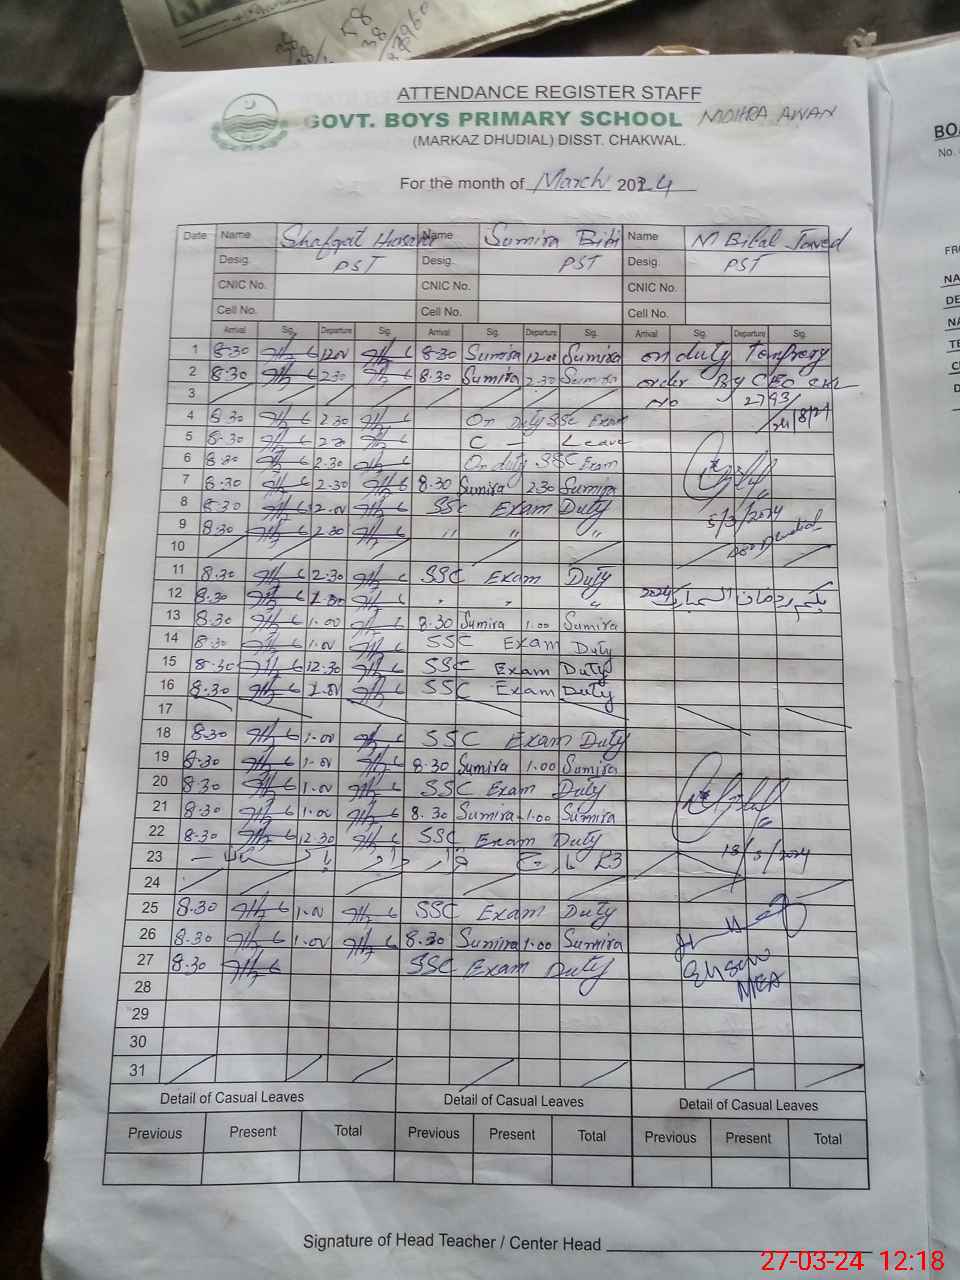 ATTENDANCE REGISTER STAFF
GOVT. BOYS PRIMARY SCHOOL MOHRA AWAN
(MARKAZ DHUDIAL) DISST. CHAKWAL.
For the month of March 2024
Date Name Shafqat Hassan Name Sumira Bibi Name M Bilal Javed
Desig. PST Desig. PST Desig. PST
CNIC No. CNIC No. CNIC No.
Cell No. Cell No. Cell No.
Arrival Sig. Departure Sig. Arrival Sig. Departure Sig. Arrival Sig. Departure Sig.
1 8.30 12.00 8.30 Sumira 12.00 Sumira on duty Temprery
2 8.30 2.30 8.30 Sumira 2.30 Sumira order By CEO CKL
3 No 2793/
4 8.30 2.30 On Duty SSC Exam
5 8.30 2.30 C - Leave
6 8.30 2.30 On duty SSC Exam
7 8.30 2.30 8.30 Sumira 2.30 Sumira
8 8.30 12.00 SSC Exam Duty 5/3/2024
9 8.30 2.30 " " "
10
11 8.30 2.30 SSC Exam Duty
12 8.30 " " " یکم رمضان المبارک 2024
13 8.30 1.00 8.30 Sumira 1.00 Sumira
14 8.30 1.00 SSC Exam Duty
15 8.30 12.30 SSC Exam Duty
16 8.30 1.00 SSC Exam Duty
17
18 8.30 1.00 SSC Exam Duty
19 8.30 1.00 8.30 Sumira 1.00 Sumira
20 8.30 1.00 SSC Exam Duty
21 8.30 1.00 8.30 Sumira 1.00 Sumira
22 8.30 12.30 SSC Exam Duty
23 18/3/2024
24
25 8.30 1.00 SSC Exam Duty
26 8.30 1.00 8.30 Sumira 1.00 Sumira
27 8.30 SSC Exam Duty
MEA
28
29
30
31
Detail of Casual Leaves Detail of Casual Leaves Detail of Casual Leaves
Previous Present Total Previous Present Total Previous Present Total
Signature of Head Teacher / Center Head
27-03-24 12:18